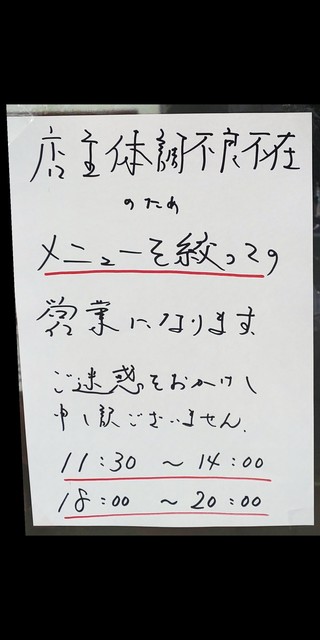 店主体調不良不在
のため
メニューを絞っての
営業になります
ご迷惑をおかけし
申し訳ございません.
11:30 ～ 14:00
18:00 ～ 20:00